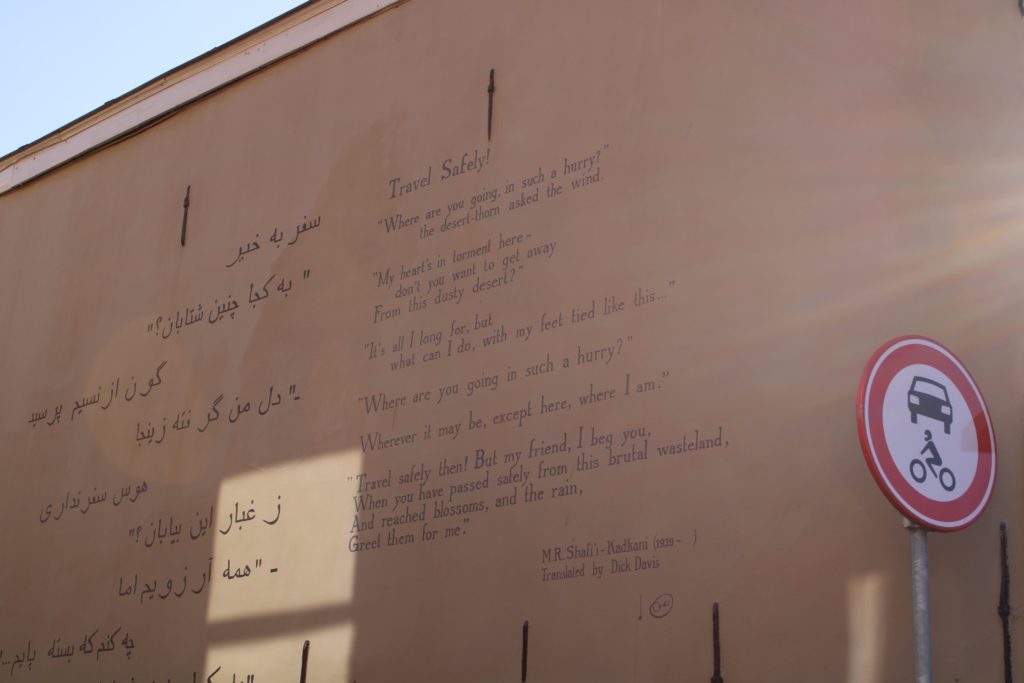 سفر به خیر
" به کجا چنین شتابان؟"
گون از نسیم پرسید
-" دل من گرفته زینجا
هوس سفر نداری
ز غبار این بیابان؟"
- "همه آرزویم اما
چه کنم که بسته پایم..."
Travel Safely!
"Where are you going, in such a hurry?"
the desert-thorn asked the wind.
"My heart's in torment here-
don't you want to get away
From this dusty desert?"
"It's all I long for, but
what can I do, with my feet tied like this..."
"Where are you going in such a hurry?"
Wherever it may be, except here, where I am."
"Travel safely then! But my friend, I beg you,
When you have passed safely from this brutal wasteland,
And reached blossoms, and the rain,
Greet them for me."
M.R. Shafi'i-Kadkani (1939- )
Translated by Dick Davis